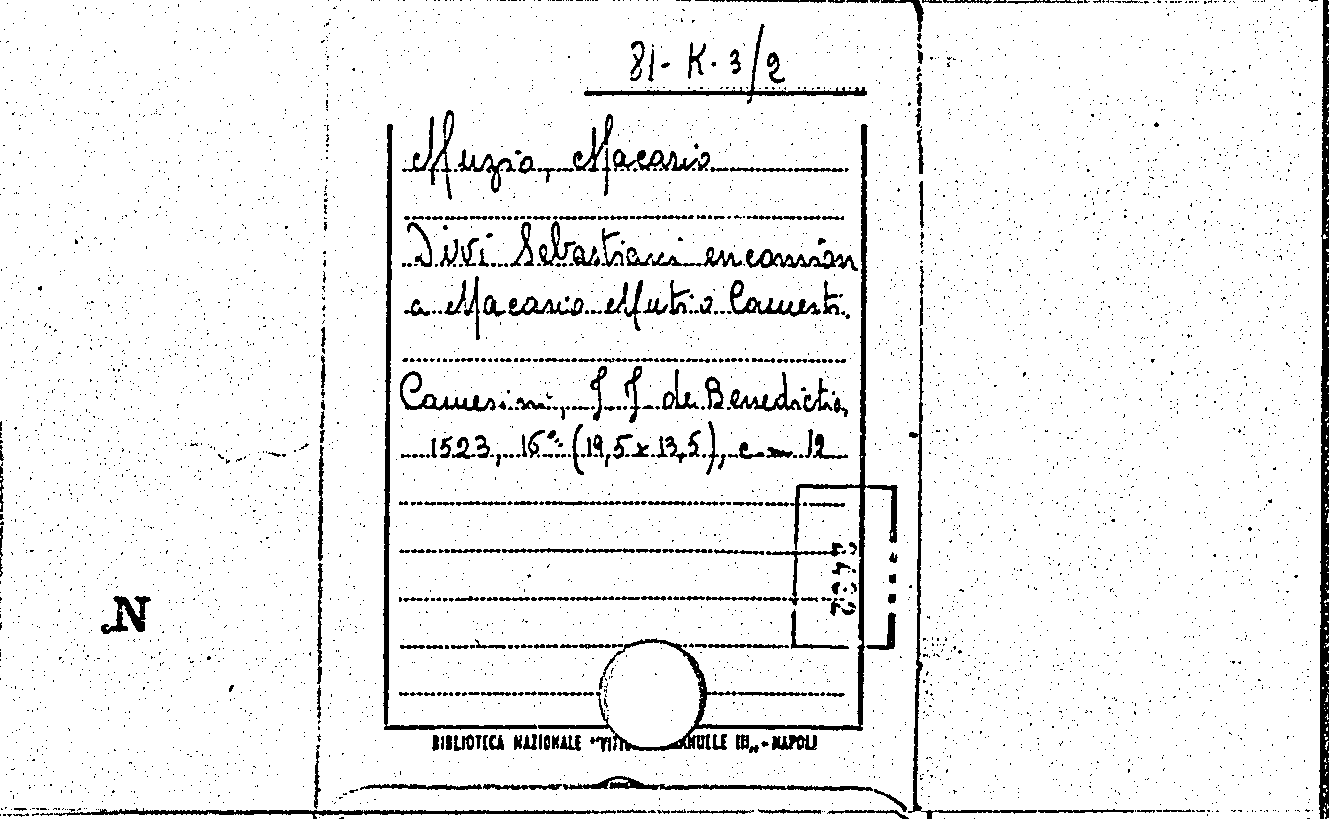 81-K-3/2
Muzio, Macario
Divi Sebastiani encomion
a Macario Mutio Camerti.
Camerini, J J de Benedictis,
1523, 16º (19,5 x 13,5), c 12
N
BIBLIOTECA NAZIONALE "VITT ANUELE III„ - NAPOLI